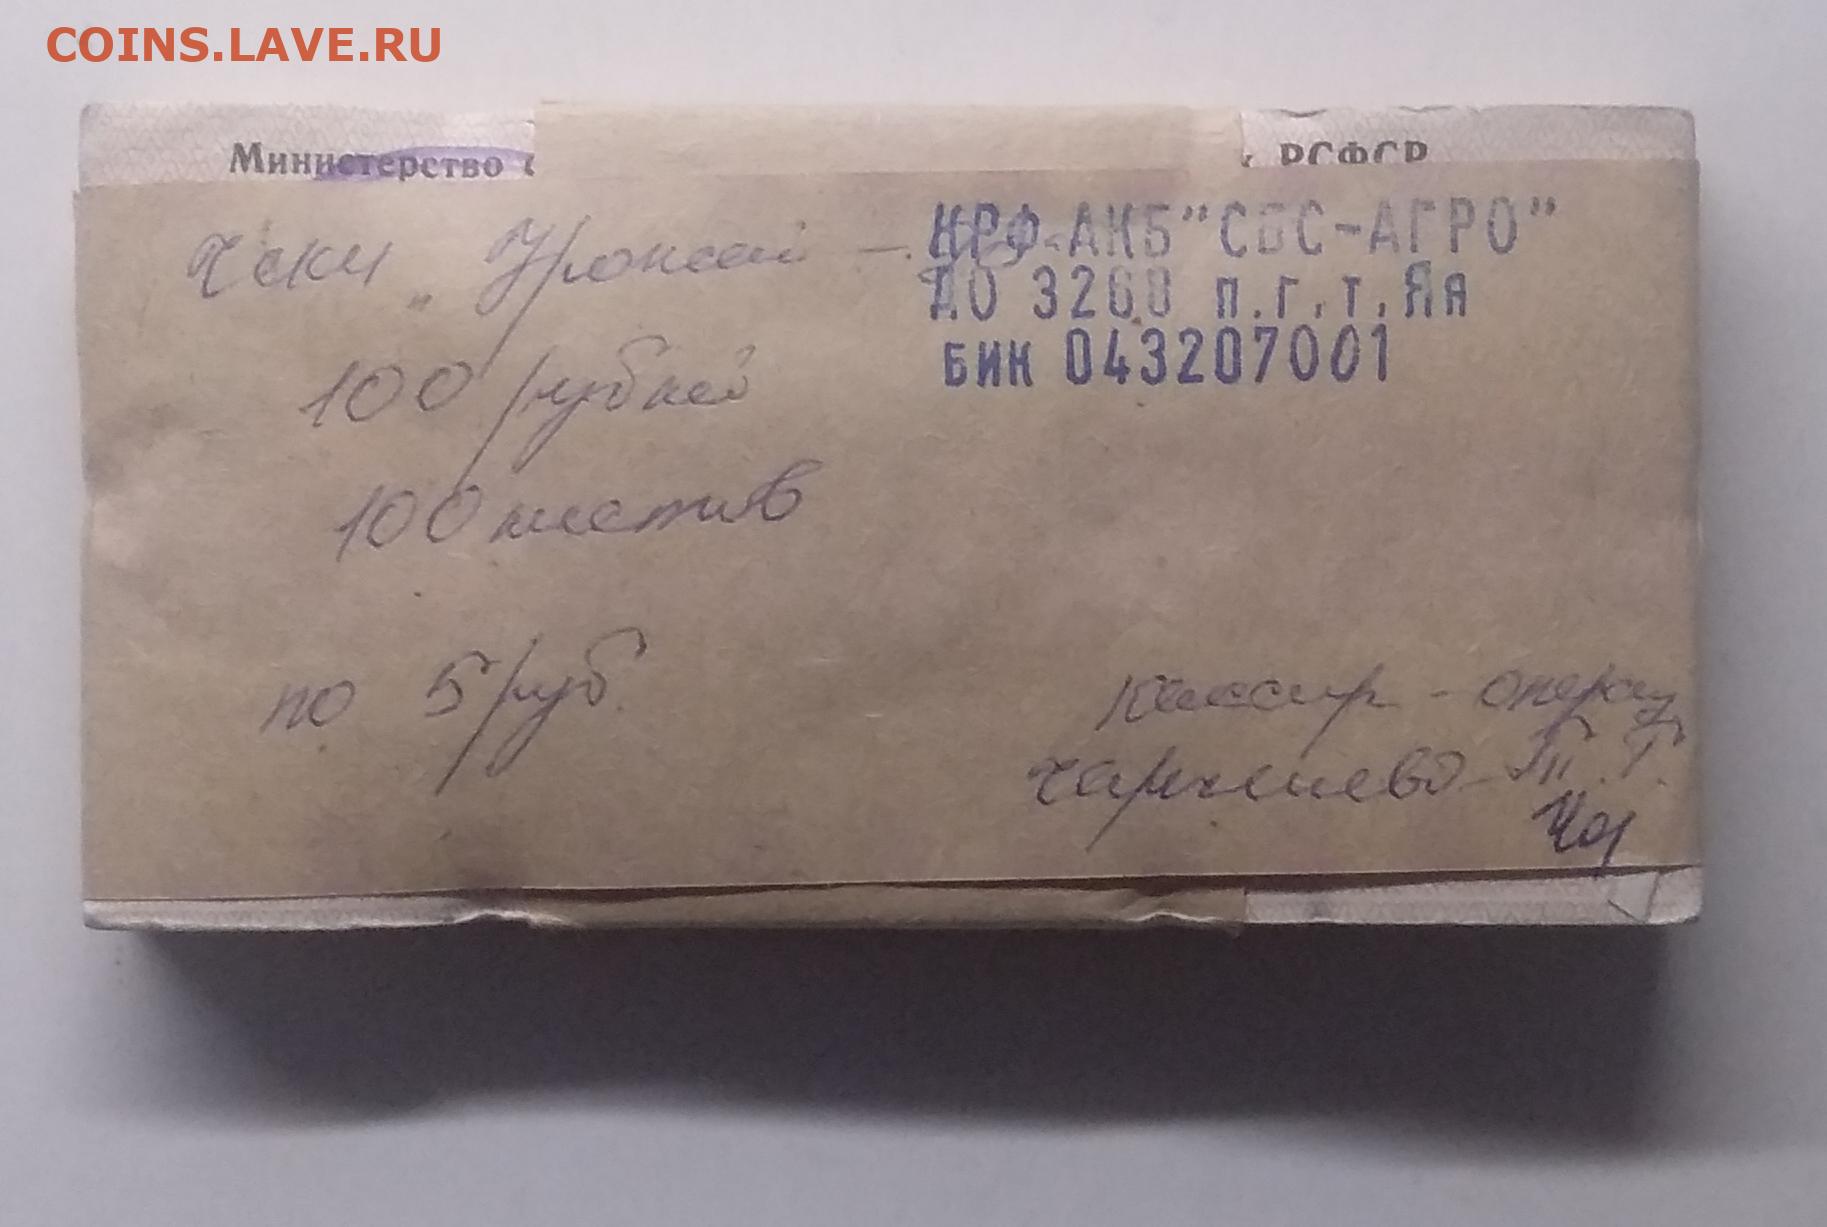 COINS.LAVE.RU
Министерство с РСФСР
Чеки „Урожай –
КРФ-АКБ"СБС-АГРО"
ДО 3260 п.г.т.Яя
БИК 043207001
100 рублей
100 листов
по 5 руб.
Кассир - операц